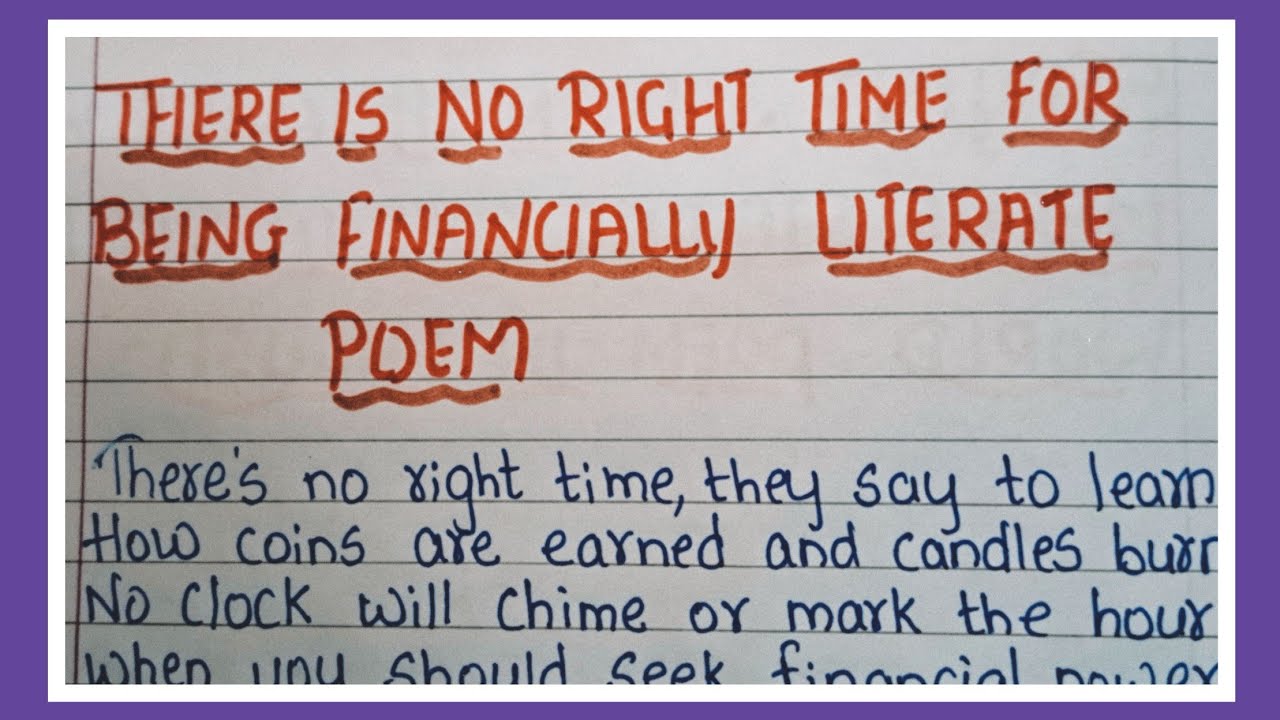 THERE IS NO RIGHT TIME FOR
BEING FINANCIALLY LITERATE
POEM
There's no right time, they say to learn
How coins are earned and candles burn
No Clock will chime or mark the hour
When you should seek financial power